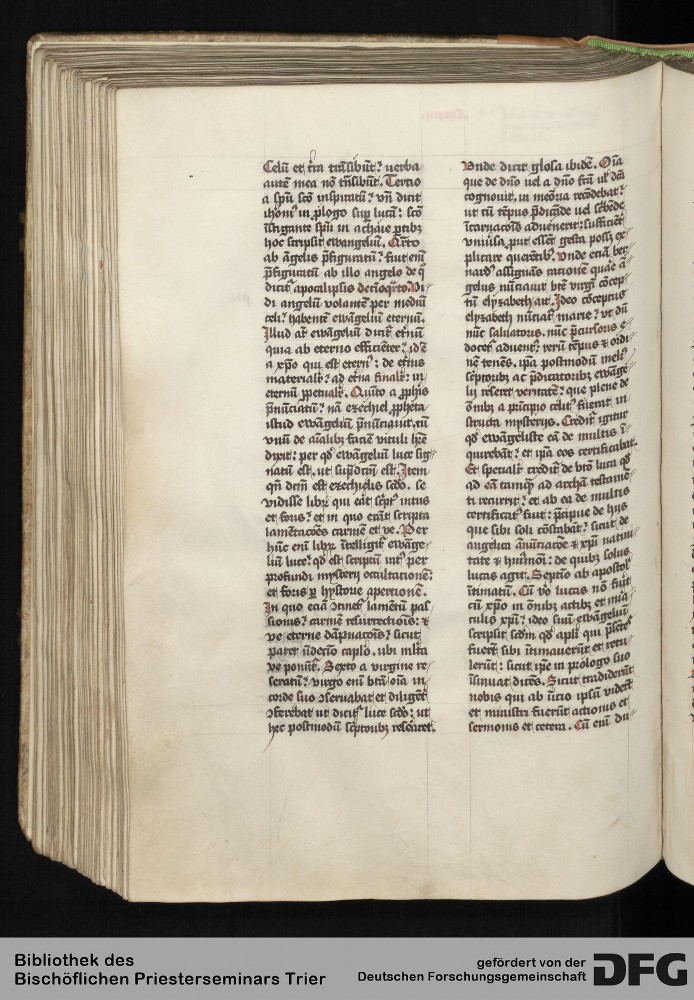 Celū et t͛ra trāsibūt: uerba
autē mea nō trāsibūt. Tertio
a spū scō inspiratū: vn̄ dicit
ihoni᷒ in ꝓlogo sup̄ lucā: scō
īstigante spū in achaie ꝑtibꝫ
hoc scripsit ewangeliū. Q̄rto
ab āgelis p̄figuratū: fuit eni
p̄figuratū ab illo angelo de q̄
dicit᷑ apocalipsis decioq̄rto. Vi
di angelū volantē per mediū
celi: habentē ewāgeliū eternū.
Illud at̄ ewāgeliū dicit᷑ et͛nū
quia ab eterno efficiēter: id ē
a xp̄o qui est etern᷒: de et͛nis
materialit͛: ad et͛na finalit͛: in
eternū ꝑpetualit͛. Quīto a ꝓphīs
p̄nūciatū: nā ezechiel ꝓpheta
istud ewāgeliū p̄nūciauit, cū
vnū de aīalibꝫ faciē vituli hr̄e
dixit: per qd̄ ewāgeliū luce sig
natū est, ut sup̄dcm̄ est. Item
qn̄ dcm̄ est ezechielis scdo. se
vidisse librū qui erat sc̄pt᷒ intus
et foris: et in quo erāt scripta
lamētacōes carmē et ve. Per
hūc enī librū ītelligit᷑ ewāge
liū luce: qd̄ est scriptū int᷒ per
profundi mysterij occultationē:
et foris ꝑ hystorie apertionē.
In quo eciā ꝯtinet᷑ lamētū pas
sionis: carmē resurrectiōis: ⁊
ve eterne dāpnacōis: sicut
patet ūdecīo caplō. ubi ml̄ta
ve ponūt᷑. Sexto a virgine re
seratū: virgo enī btā oīa in
corde suo ꝯseruabat et diligēt͛
ꝯferebat ut dicit᷑ luce scdo: ut
hec postmodū sc̄ptoribꝫ reseraret.
Vnde dicit glosa ibidē. Oīa
que de dn̄o uel a dn̄o fc̄a ul͛ dc̄a
cognouit, in meōria recōdebat:
ut cū tēpus p̄dicādē uel sc̄bēde
īcarnacōis adueneret: sufficiēt͛
vniūsa, put essēt gesta possꝫ ex
plicare querētibꝫ. Vnde eciā ber
nard᷒ assignās racionē quare ā
gelus nūciauit bte virgī cōcep
tū elyzabeth, ait. Ideo cōceptus
elyzabeth nūciat᷑ marie: ut dū
nūc saluatoris, nūc p̄cursoris e
docet᷑ aduent᷒: rerū tēpus ⁊ ordi
nē tenēs, ipā postmodū meli᷒
sc̄ptoribꝫ ac p̄dicatoribꝫ ewāge
lij reseret veritatē: que plene de
ōnibꝫ a pīcipio celit᷒ fuerat in
structa mysterijs. Credit᷑ igitur
qd̄ ewāgeliste eā de multis ī
quirebāt: et ipā eos certificabat.
Et specialit͛ credit᷑ de btō luca qd̄
ad eā tamq̄ ad archā testamē
ti recurrit: et ab ea de multis
certificat᷒ fuit: p̄cipue de hijs
que sibi soli cōstabāt: sicut de
angelica ānūciacōe ⁊ xp̄i natiui
tate ⁊ hui᷒mōi: de quibꝫ solus
lucas agit. Septīo ab apostol᷒
ītimatū. Cū v̄o lucas nō fuit
cū xp̄o in ōnibꝫ actibꝫ et mīa
culis xp̄i: ideo suū ewāgeliū
scripsit scdm̄ qd̄ apl̄i qui p̄sētes
fuerūt sibi intimauerūt et retu
lerūt: sicut ipē in prologo suo
īsinuat dicēs. Sicut tradiderūt
nobis qui ab īitio ipsū viderūt
et ministri fuerūt actionis et
sermonis et cetera. Cū enī du
Bibliothek des
Bischöflichen Priesterseminars Trier
gefördert von der
Deutschen Forschungsgemeinschaft
DFG